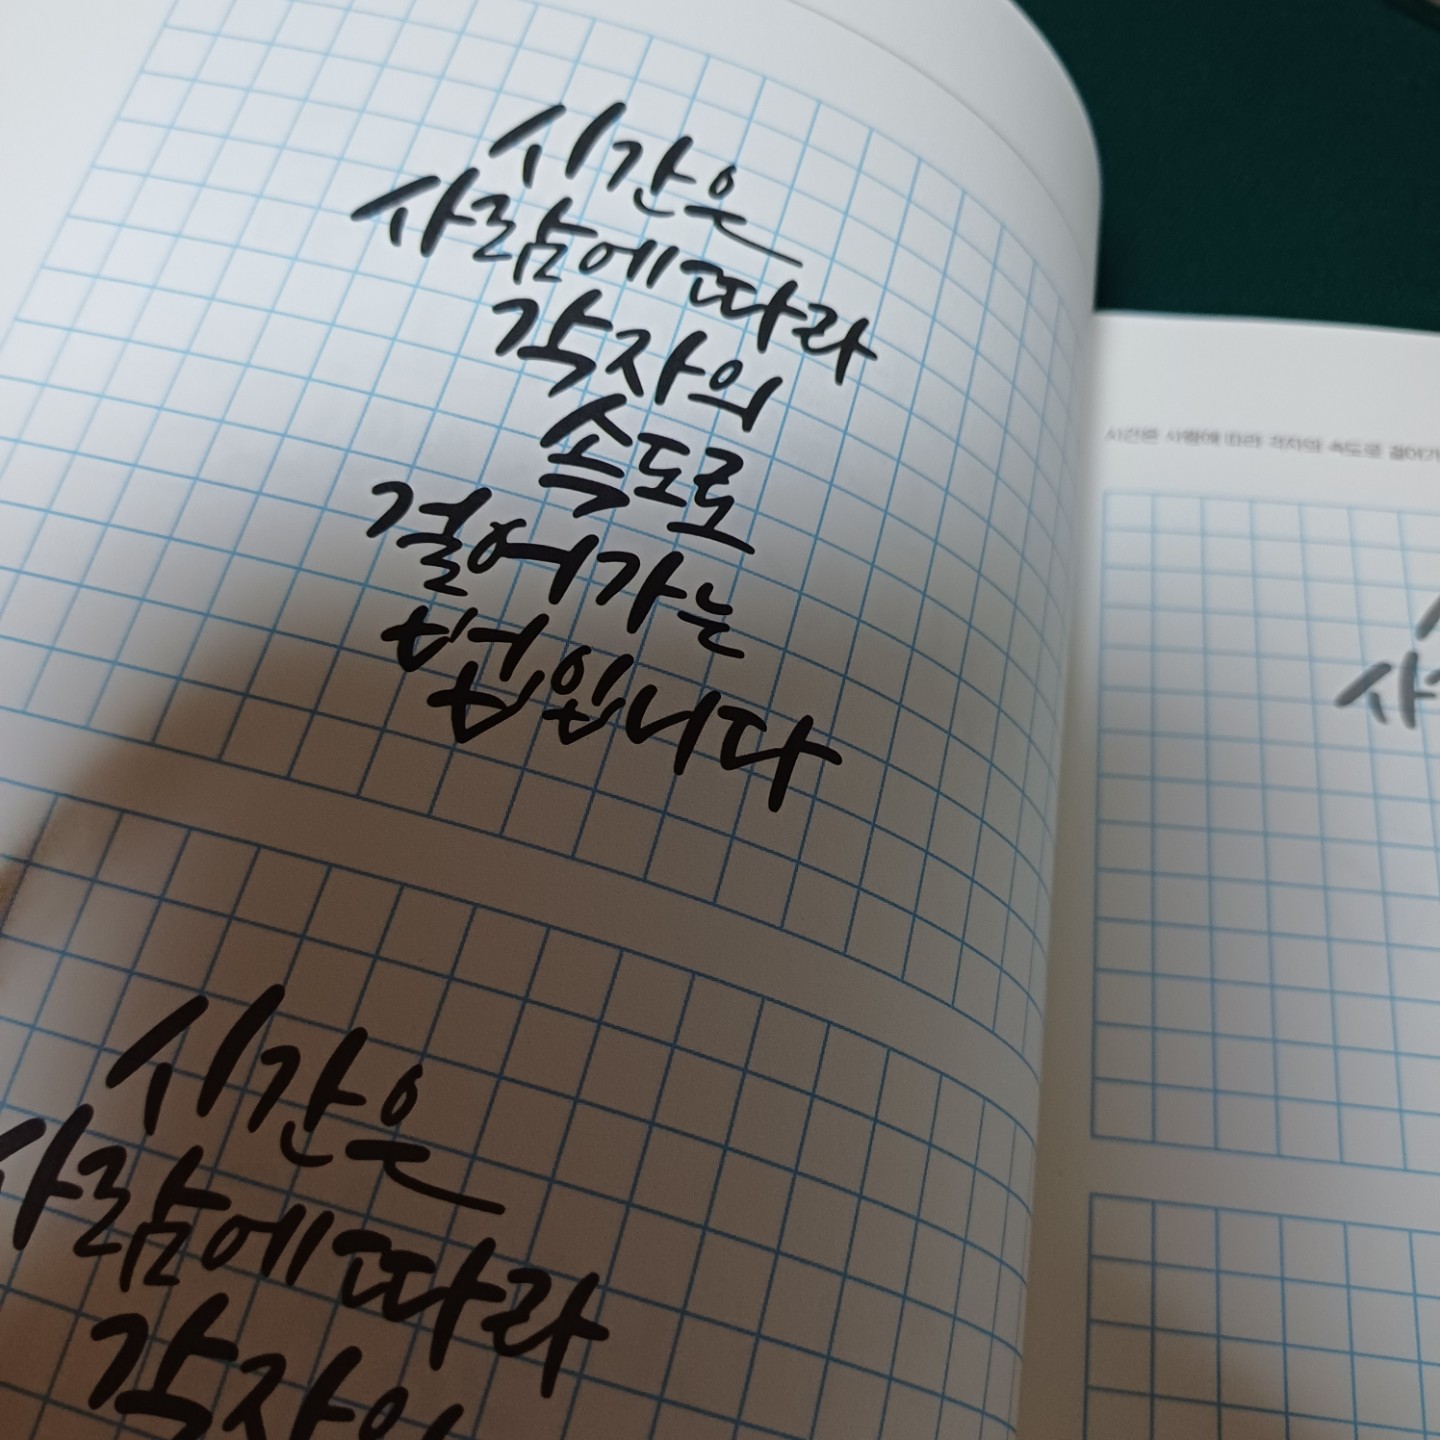 시간은
사람에 따라
각자의
속도로
걸어가는
법입니다
시간은
사람에 따라
각자의
시간은 사람에 따라 각자의 속도로 걸어가
사